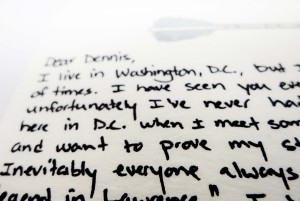 Dear Dennis,
I live in Washington, D.C., but I
of times. I have seen you eve
unfortunately I've never hav
here in D.C. when I meet som
and want to prove my st
Inevitably everyone always
legend in Lawrence"